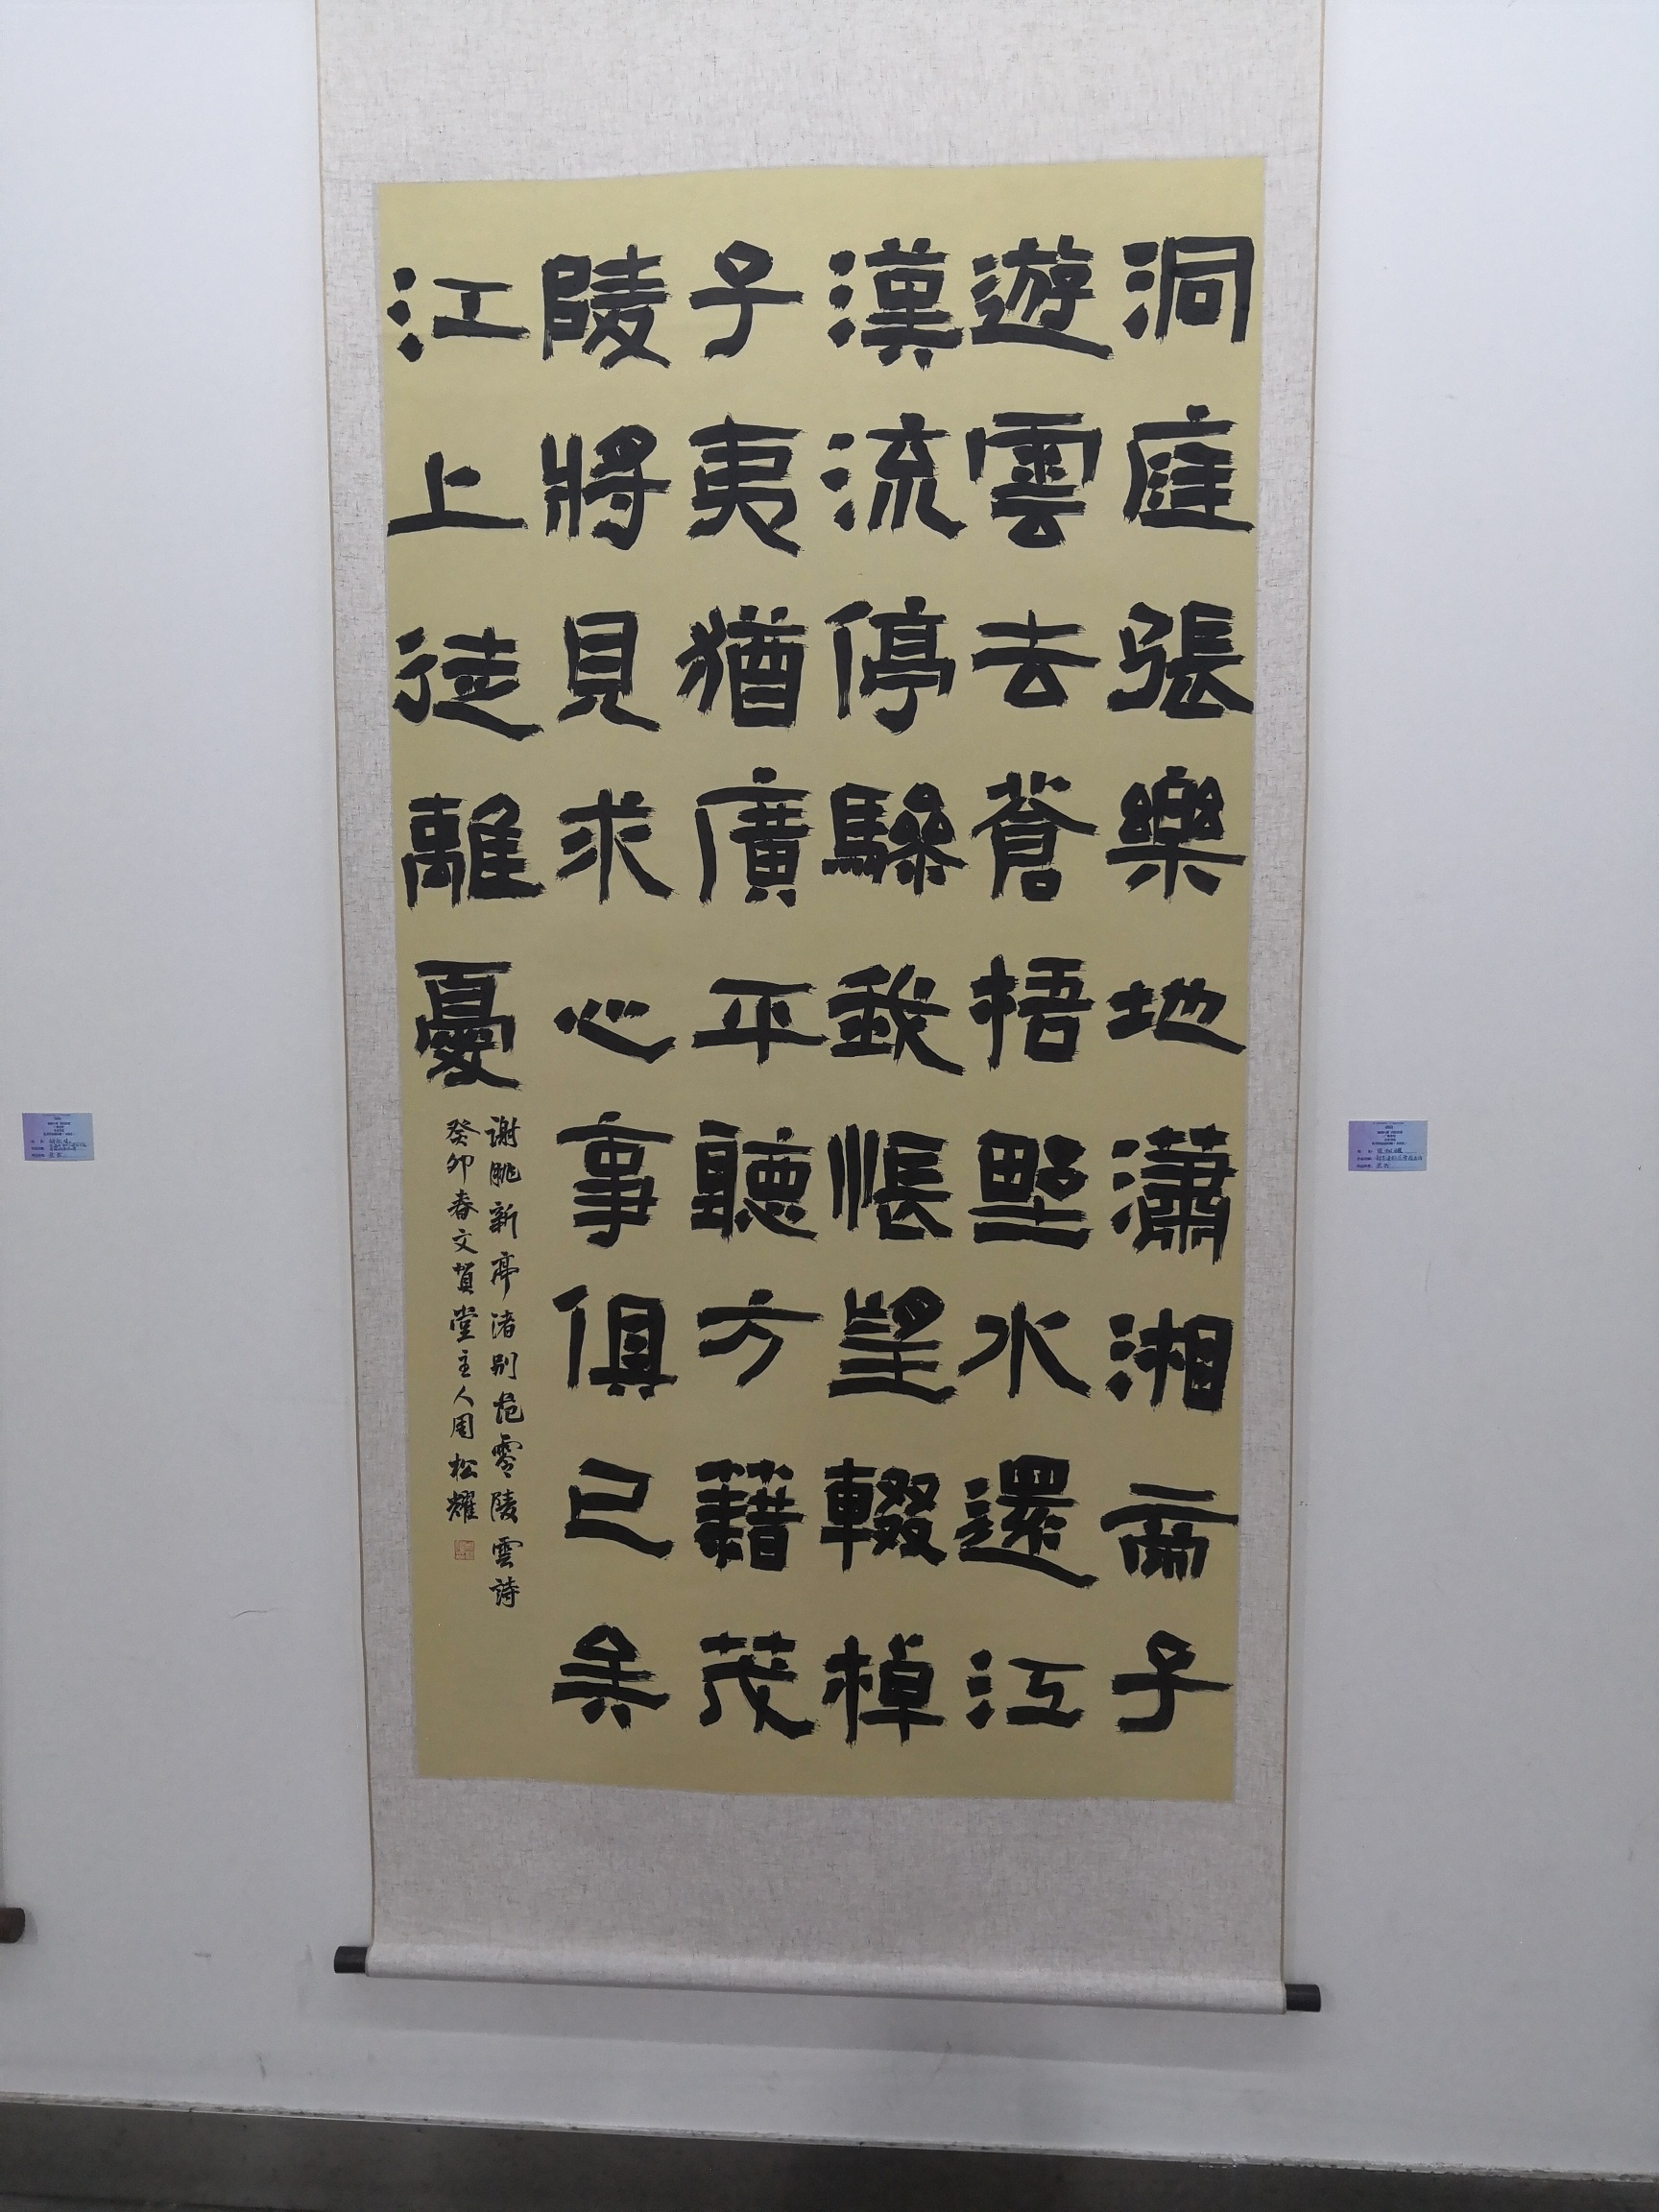 洞庭張樂地瀟湘帝子
遊雲去蒼梧野水還江
漢流停驂我悵望輟棹
子夷猶廣平聽方籍茂
陵將見求心事俱已矣
江上徒離憂
謝朓新亭渚別范零陵雲詩
癸卯春文質堂主人周松耀